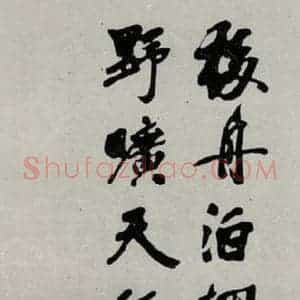 移舟泊
野曠天
Shufaziliao.COM